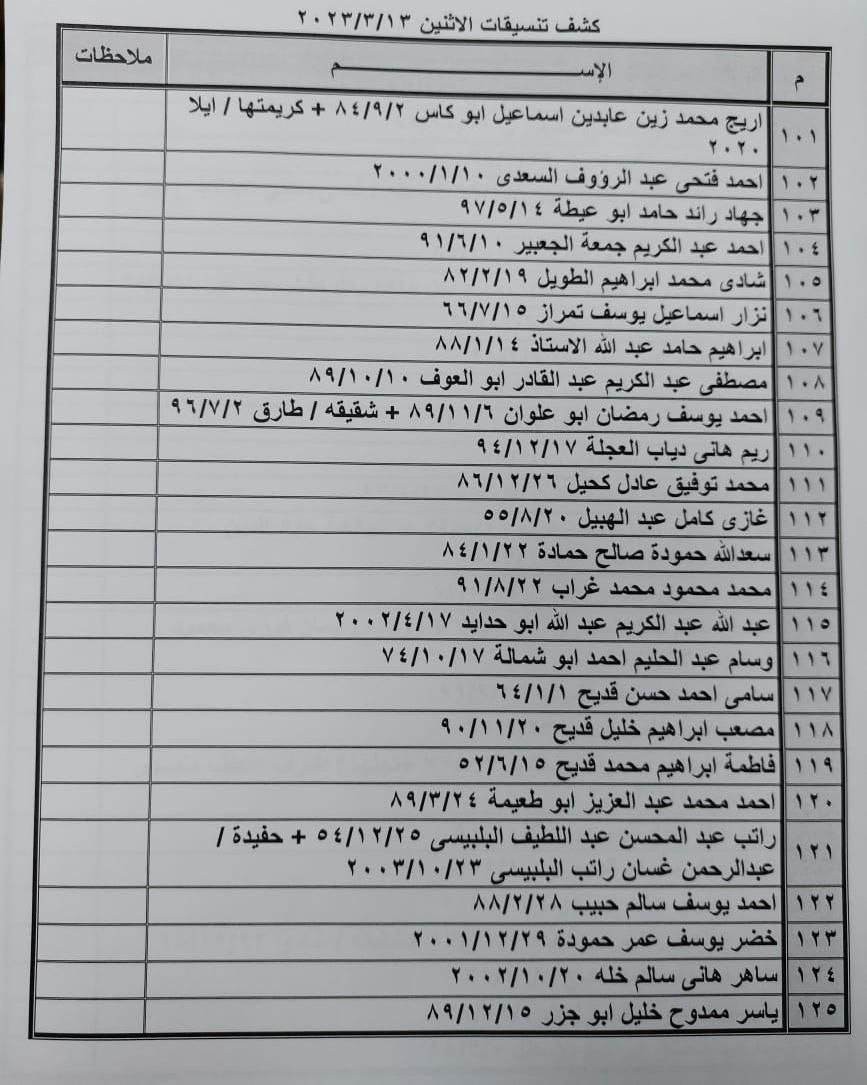 كشف تنسيقات الاثنين ٢٠٢٣/٣/١٣
م الإســـــــم ملاحظات
١٠١ اريج محمد زين عابدين اسماعيل ابو كاس ٨٤/٩/٢ + كريمتها / ايلا
٢٠٢٠
١٠٢ احمد فتحى عبد الرؤوف السعدى ٢٠٠٠/١/١٠
١٠٣ جهاد رائد حامد ابو عيطة ٩٧/٥/١٤
١٠٤ احمد عبد الكريم جمعة الجعبير ٩١/٦/١٠
١٠٥ شادى محمد ابراهيم الطويل ٨٢/٢/١٩
١٠٦ نزار اسماعيل يوسف تمراز ٦٦/٧/١٥
١٠٧ ابراهيم حامد عبد الله الاستاذ ٨٨/١/١٤
١٠٨ مصطفى عبد الكريم عبد القادر ابو العوف ٨٩/١٠/١٠
١٠٩ احمد يوسف رمضان ابو علوان ٨٩/١١/٦ + شقيقه / طارق ٩٦/٧/٢
١١٠ ريم هانى دياب العجلة ٩٤/١٢/١٧
١١١ محمد توفيق عادل كحيل ٨٦/١٢/٢٦
١١٢ غازى كامل عبد الهبيل ٥٥/٨/٢٠
١١٣ سعدالله حمودة صالح حمادة ٨٤/١/٢٢
١١٤ محمد محمود محمد غراب ٩١/٨/٢٢
١١٥ عبد الله عبد الكريم عبد الله ابو حدايد ٢٠٠٢/٤/١٧
١١٦ وسام عبد الحليم احمد ابو شمالة ٧٤/١٠/١٧
١١٧ سامى احمد حسن قديح ٦٤/١/١
١١٨ مصعب ابراهيم خليل قديح ٩٠/١١/٢٠
١١٩ فاطمة ابراهيم محمد قديح ٥٢/٦/١٥
١٢٠ احمد محمد عبد العزيز ابو طعيمة ٨٩/٣/٢٤
١٢١ راتب عبد المحسن عبد اللطيف البلبيسى ٥٤/١٢/٢٥ + حفيدة /
عبدالرحمن غسان راتب البلبيسى ٢٠٠٣/١٠/٢٣
١٢٢ احمد يوسف سالم حبيب ٨٨/٢/٢٨
١٢٣ خضر يوسف عمر حمودة ٢٠٠١/١٢/٢٩
١٢٤ ساهر هانى سالم خله ٢٠٠٢/١٠/٢٠
١٢٥ ياسر ممدوح خليل ابو جزر ٨٩/١٢/١٥